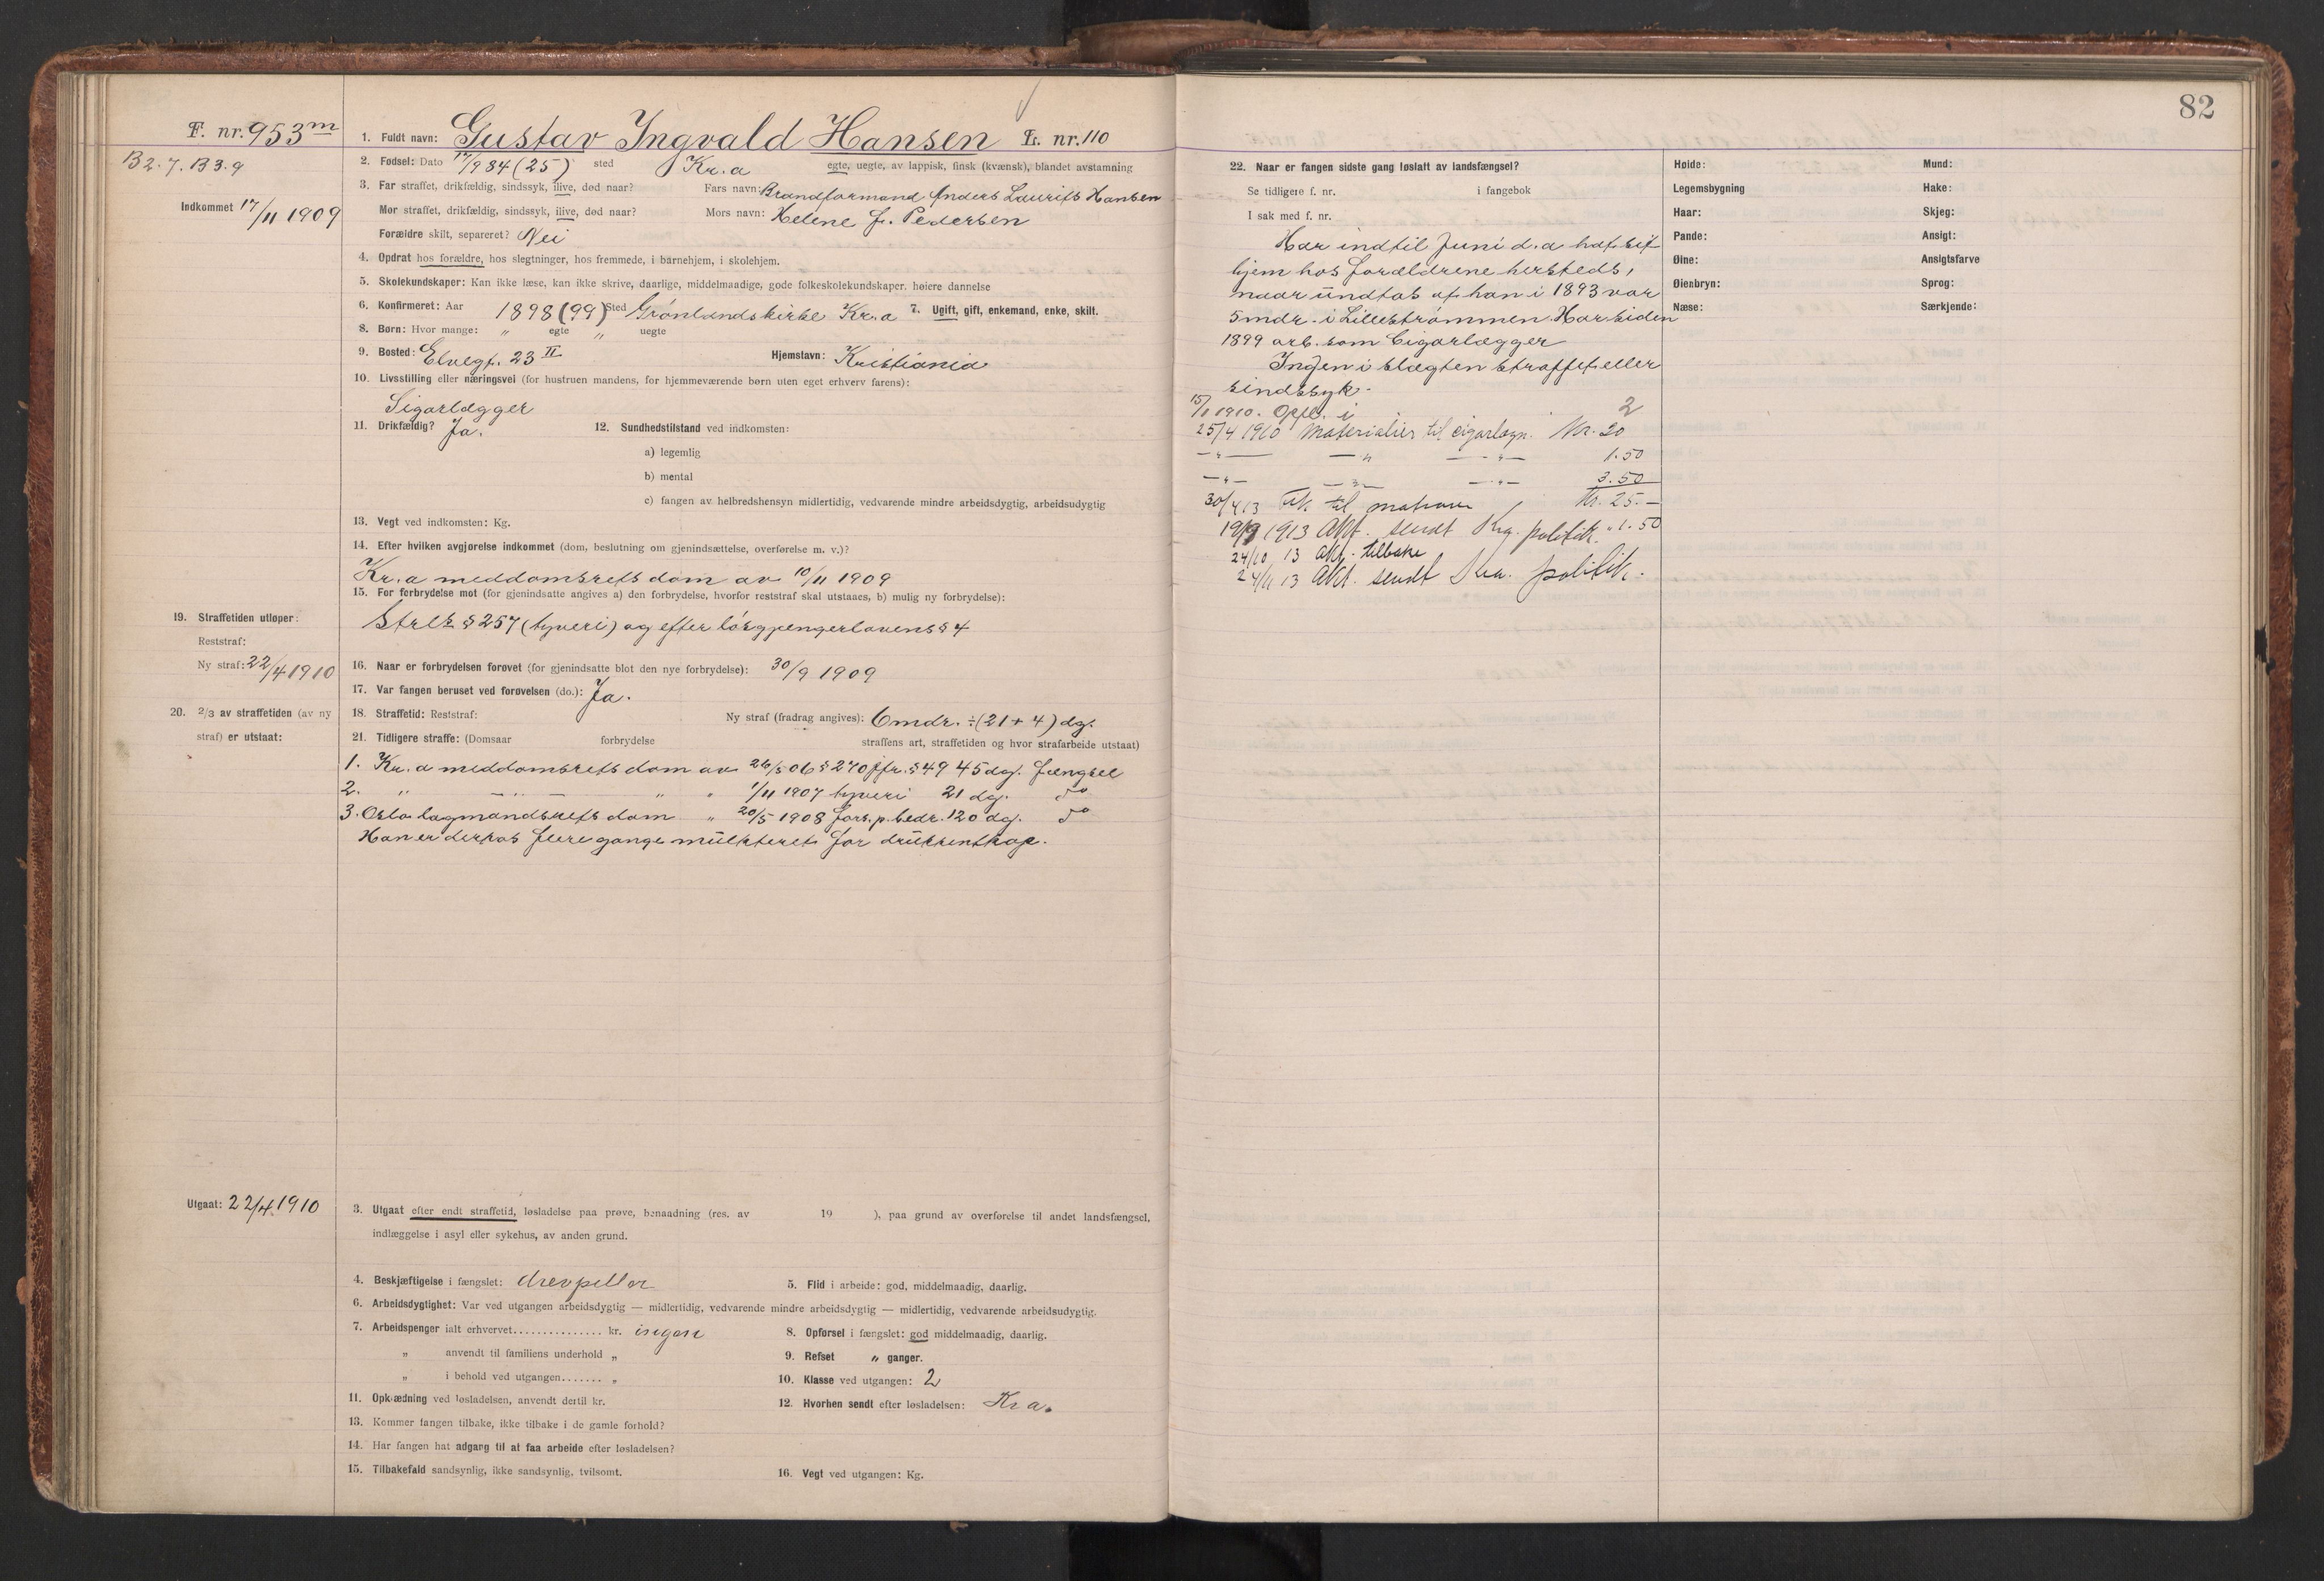 82
F. nr. 953m
B2. 7. B3. 9
Indkommet 17/11 1909
1. Fuldt navn: Gustav Ingvald Hansen L. nr. 110
2. Fødsel: Dato 17/9 84 (25) sted Kr.a egte, uegte, av lappisk, finsk (kvænsk), blandet avstamning
3. Far straffet, drikfældig, sindssyk, ilive, død naar? Fars navn: Brandformand Anders Laurits Hansen
Mor straffet, drikfældig, sindssyk, ilive, død naar? Mors navn: Helene f. Pedersen
Forældre skilt, separeret? Nei
4. Opdrat hos forældre, hos slegtninger, hos fremmede, i barnehjem, i skolehjem.
5. Skolekundskaper: Kan ikke læse, kan ikke skrive, daarlige, middelmaadige, gode folkeskolekundskaper, høiere dannelse
6. Konfirmeret: Aar 1898 (99) Sted Grønlands kirke Kr.a 7. Ugift, gift, enkemand, enke, skilt.
8. Børn: Hvor mange: " egte " uegte
9. Bosted: Elvegt. 23 II Hjemstavn: Kristiania
10. Livsstilling eller næringsvei (for hustruen mandens, for hjemmeværende børn uten eget erhverv farens):
Sigarlægger
11. Drikfældig? Ja. 12. Sundhedstilstand ved indkomsten:
a) legemlig
b) mental
c) fangen av helbredshensyn midlertidig, vedvarende mindre arbeidsdygtig, arbeidsudygtig
13. Vegt ved indkomsten: Kg.
14. Efter hvilken avgjørelse indkommet (dom, beslutning om gjenindsættelse, overførelse m. v.)?
Kr.a meddomsrets dom av 10/11 1909
15. For forbrydelse mot (for gjenindsatte angives a) den forbrydelse, hvorfor reststraf skal utstaaes, b) mulig ny forbrydelse):
Strlk § 257 (tyveri) og efter løsgjængerlovens § 4
19. Straffetiden utløper:
Reststraf:
Ny straf: 22/4 1910
16. Naar er forbrydelsen forøvet (for gjenindsatte blot den nye forbrydelse): 30/9 1909
17. Var fangen beruset ved forøvelsen (do.): Ja.
20. 2/3 av straffetiden (av ny
straf) er utstaat:
18. Straffetid: Reststraf: Ny straf (fradrag angives): 6 mdr. ÷ (21 + 4) dg.
21. Tidligere straffe: (Domsaar forbrydelse straffens art, straffetiden og hvor strafarbeide utstaat)
1. Kr.a meddomsrets dom av 26/5 06 § 270 jfr. § 49 45 dg. fængsel
2. " — " — " " 1/11 1907 tyveri 21 dg. do
3. Oslo lagmandsrets dom " 20/5 1908 fors. p. bedr. 120 dg. do
Han er derhos flere gange mulkteret for drukkenskap.
Utgaat: 22/4 1910
3. Utgaat efter endt straffetid, løsladelse paa prøve, benaadning (res. av 19 ), paa grund av overførelse til andet landsfængsel,
indlæggelse i asyl eller sykehus, av anden grund.
4. Beskjæftigelse i fængslet: drevpiller 5. Flid i arbeide: god, middelmaadig, daarlig.
6. Arbeidsdygtighet: Var ved utgangen arbeidsdygtig — midlertidig, vedvarende mindre arbeidsdygtig — midlertidig, vedvarende arbeidsudygtig.
7. Arbeidspenger ialt erhvervet............... kr. ingen 8. Opførsel i fængslet: god middelmaadig, daarlig.
" anvendt til familiens underhold " 9. Refset " ganger.
" i behold ved utgangen....... " 10. Klasse ved utgangen: 2
11. Opklædning ved løsladelsen, anvendt dertil kr. 12. Hvorhen sendt efter løsladelsen: Kra.
13. Kommer fangen tilbake, ikke tilbake i de gamle forhold?
14. Har fangen hat adgang til at faa arbeide efter løsladelsen?
15. Tilbakefald sandsynlig, ikke sandsynlig, tvilsomt. 16. Vegt ved utgangen: Kg.
22. Naar er fangen sidste gang løslatt av landsfængsel?
Se tidligere f. nr. i fangebok
I sak med f. nr.
Har indtil Juni d.a hat sit
hjem hos forældrene hersteds,
naar undtas at han i 1893 var
5 mdr. i Lillestrømmen. Har siden
1899 arb. som Cigarlægger
Ingen i slægten straffet eller
sindssyk.
15/1 1910. Opfl. i 2
25/4 1910 Materialier til cigarlægn. Kr. 20
— " — — " — — " — 1.50
— " — — " — — " — 3.50
30/4 13 til Kr. 25.—
19/9 1913 Akt. sendt Kra. politik. " 1.50
24/10 13 Akt. tilbake
24/11 13 Akt. sendt Kra. politik.
Høide: Mund:
Legemsbygning Hake:
Haar: Skjeg:
Pande: Ansigt:
Øine: Ansigtsfarve
Øienbryn: Sprog:
Næse: Særkjende: